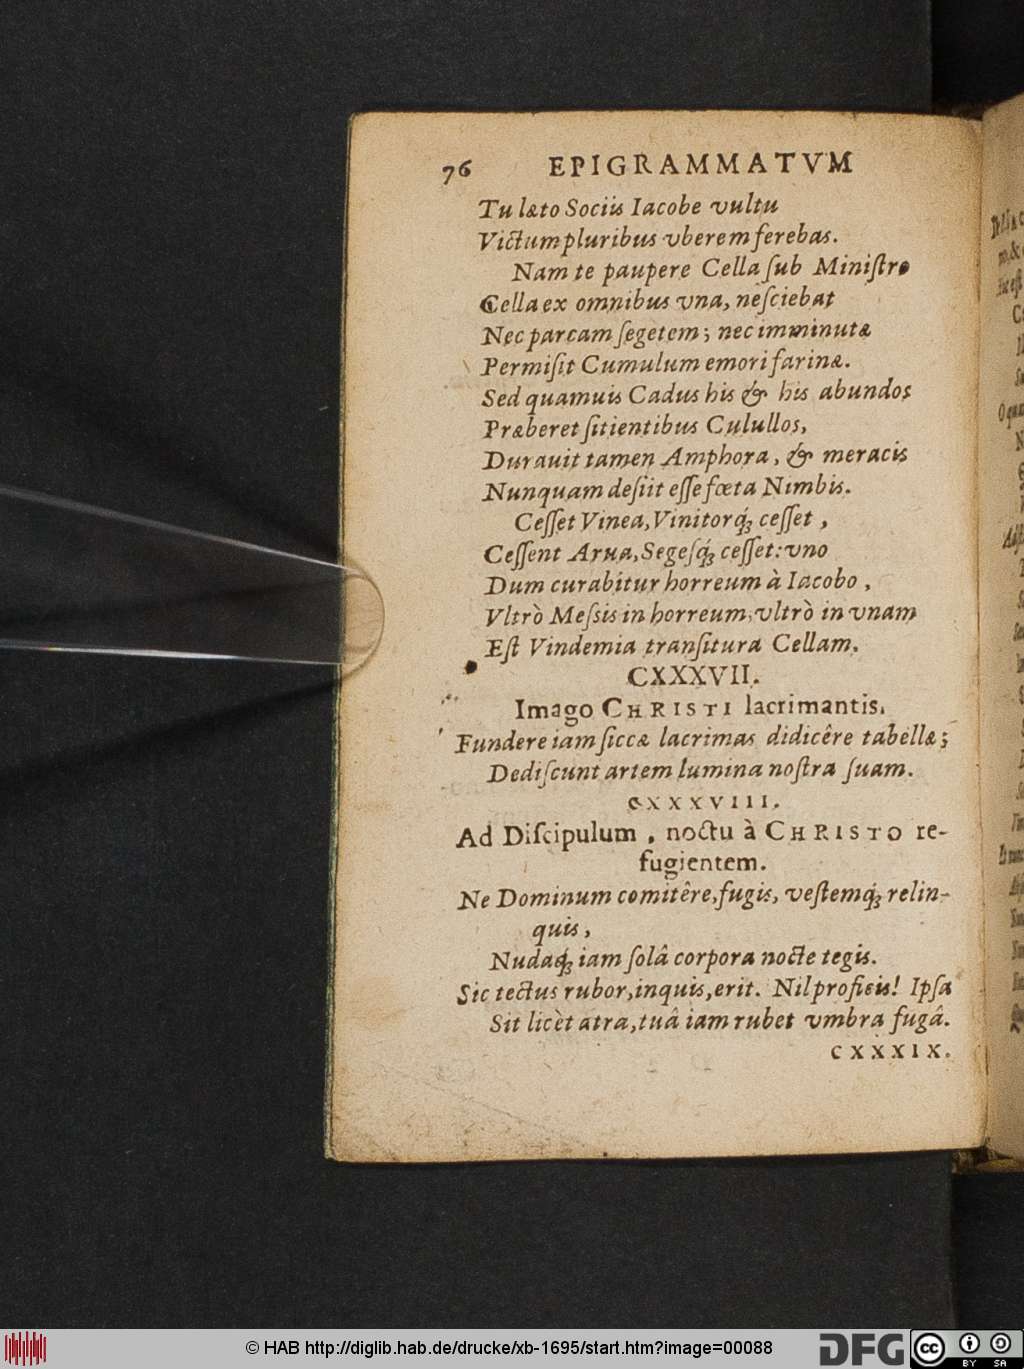 76 EPIGRAMMATVM
Tu læto Sociis Iacobe vultu
Victum pluribus vberem ferebas.
Nam te paupere Cella ſub Miniſtro
Cella ex omnibus vna, neſciebat
Nec parcam ſegetem; nec imminutæ
Permiſit Cumulum emori farinæ.
Sed quamuis Cadus his & his abundos
Præberet ſitientibus Culullos,
Durauit tamen Amphora, & meracis
Nunquam deſiit eſſe fœta Nimbis.
Ceſſet Vinea, Vinitorq́; ceſſet,
Ceſſent Arua, Segeſq́; ceſſet: vno
Dum curabitur horreum à Iacobo,
Vltrò Meſsis in horreum, vltrò in vnam
Eſt Vindemia tranſitura Cellam.
CXXXVII.
Imago CHRISTI lacrimantis.
Fundere iam ſiccæ lacrimas didicêre tabellæ;
Dediſcunt artem lumina noſtra ſuam.
CXXXVIII.
Ad Diſcipulum, noctu à CHRISTO re-
fugientem.
Ne Dominum comitêre, fugis, veſtemq́; relin-
quis,
Nudaq́; iam ſolâ corpora nocte tegis.
Sic tectus rubor, inquis, erit. Nil proficis! Ipſa
Sit licèt atra, tuâ iam rubet vmbra fugâ.
CXXXIX.
© HAB http://diglib.hab.de/drucke/xb-1695/start.htm?image=00088
DFG
cc BY SA